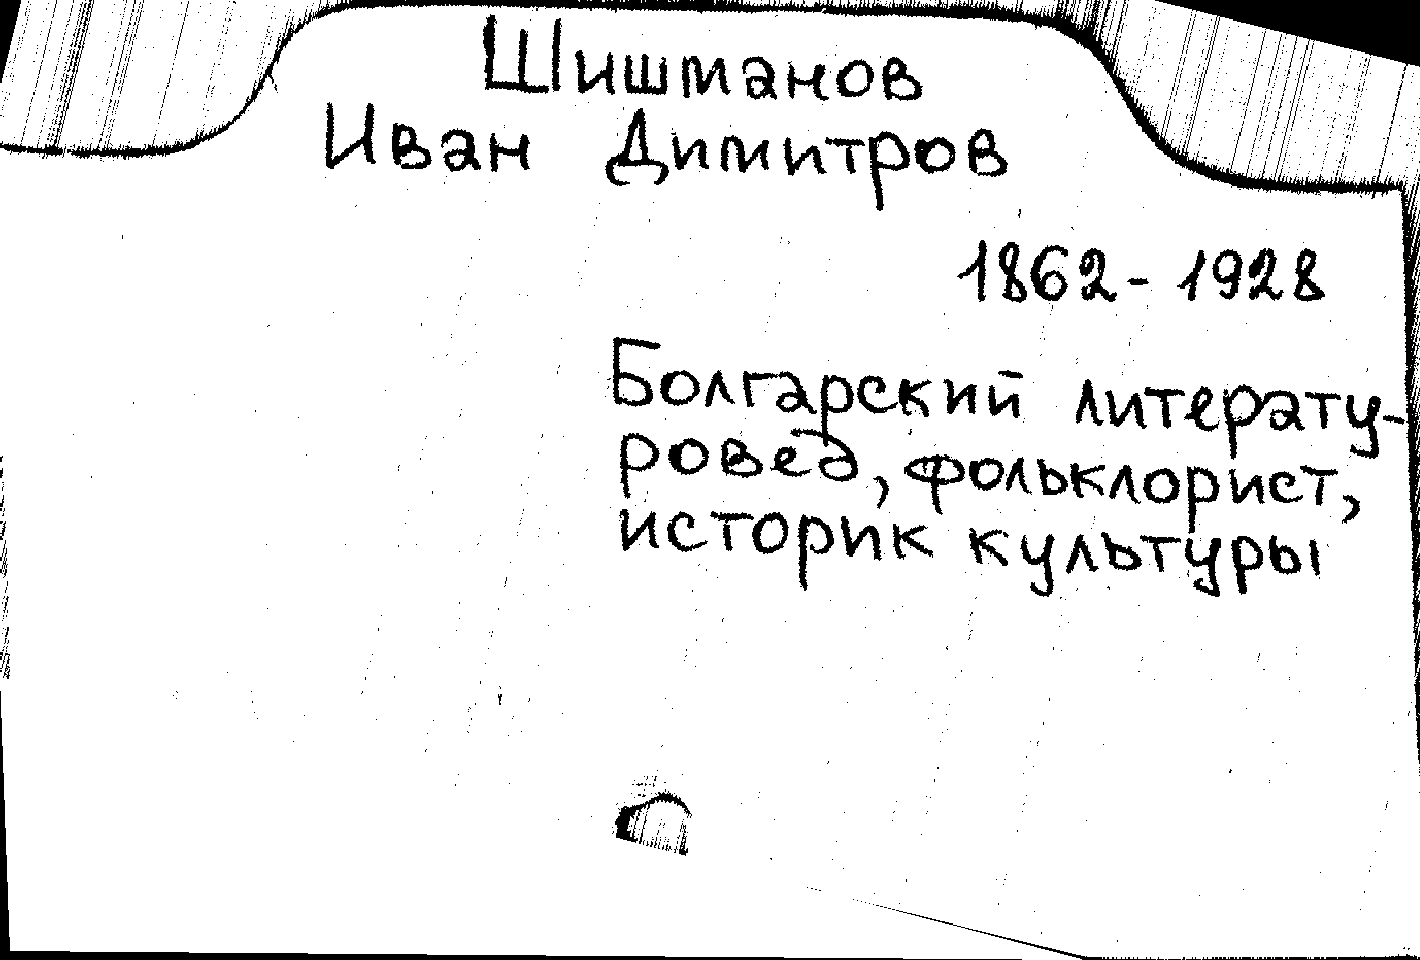 Шишманов
Иван Димитров
1862-1928
Болгарский литерату-
ровед, фольклорист,
историк культуры